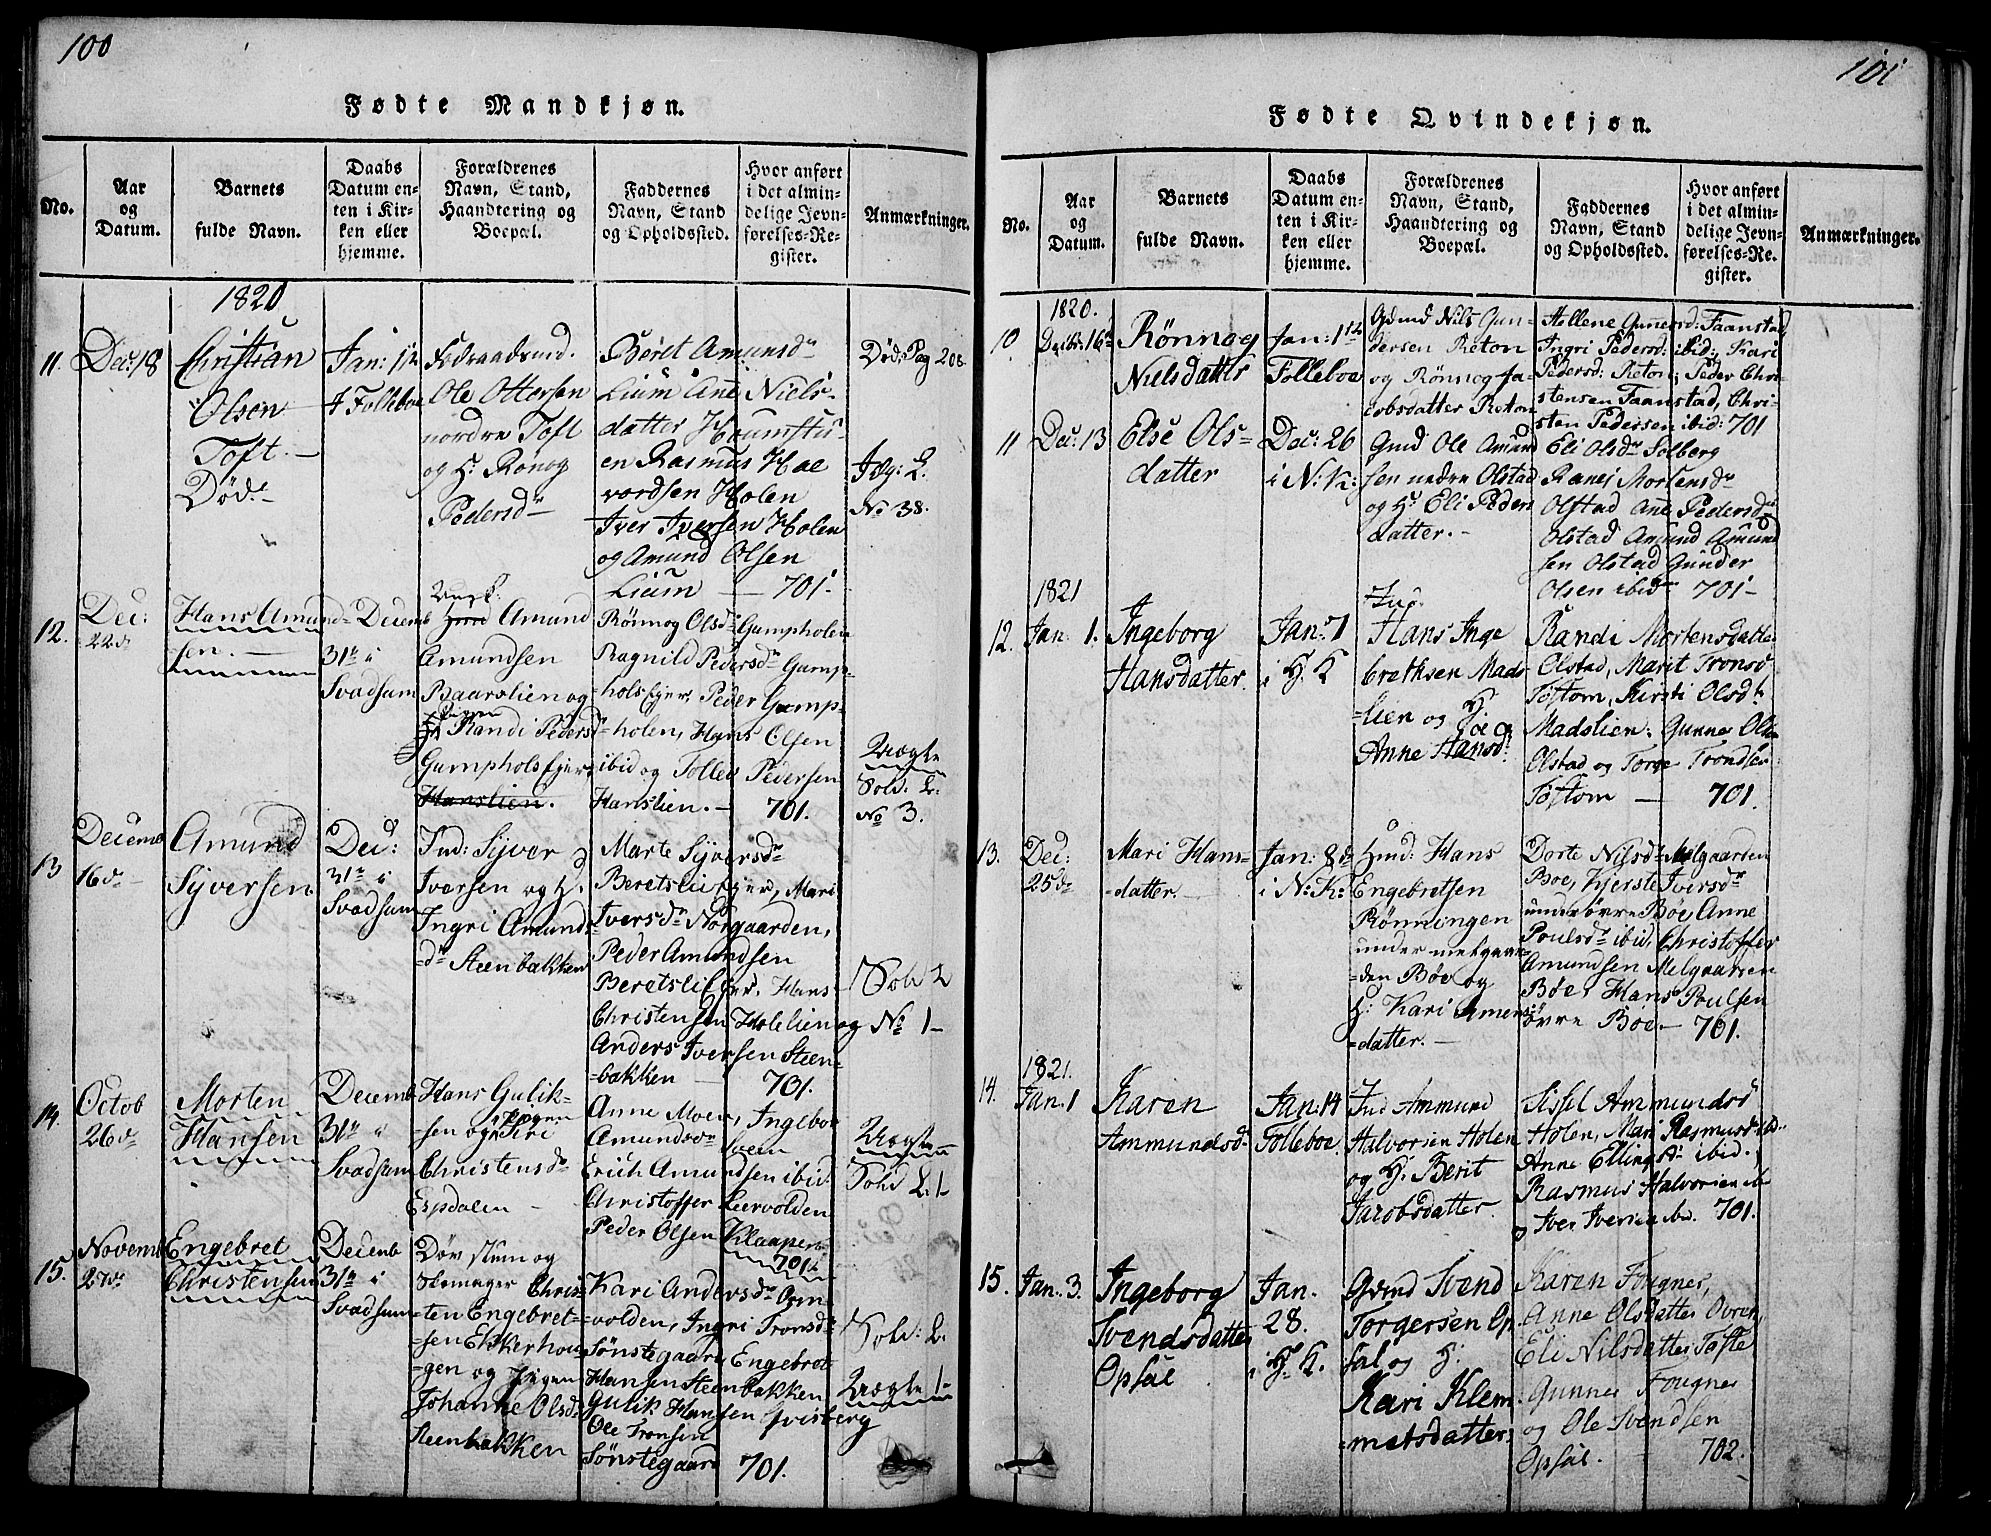 100
Fødte Mandkjøn.
No.
Aar
og
Datum.
Barnets
fulde Navn.
Daabs
Datum en-
ten i Kir-
ken eller
hjemme.
Forældrenes
Navn, Stand,
Haandtering og
Boepæl.
Faddernes
Navn, Stand
og Opholdssted.
Hvor anført
i det almin-
delige Jevn-
førelses-Re-
gister.
Anmærkninger.
1820
11.
Dec: 18
Christian
Olsen
Toft.
Død.
Jan: 1
Folleboe
Ole Ottersen
nordre Toft
og H: Rønog
Pedersd
Børet Amunsdr
Lium Ane Niels-
datter Houmstu-
en Rasmus Hal
vordsen Holen
Iver Iversen Holen
og Amund Olsen
Lium — 701.
Død. Pag 208.
No 38.
12.
Dec:
22d
Hans Amund-
sen.
Decemb
31te i
Svadsum
Amund
Amundsen
Baarolien og
Randi Peders
Gampholsejer
Hanslien.
Rønnog Olsd. Gampholen
Ragnild Pedersdr Gamp-
holsejer, Peder Gamp-
holen, Hans Olsen
ibid og Tollev Pedersen
Hanslien. — 701.
Uægte
No 3.
13
Decemb
16d
Amund
Syversen
Dec:
31te i
Svadsum
Ind: Syver
Iversen og H.
Ingri Amunds
dr Steenbakken
Marte Syversdr
Beretsliejer, Mari
Iversdr Norgaarden,
Peder Amundsen
Beretsliejer, Hans
Christensen Holelien og
Anders Iversen Steen-
bakken — 701.
No 1
14.
Octob
26d
Morten
Hansen
Decemb
31te i
Svadsum
Hans Gulik-
sen og Siri
Christensdr
Espdalen
Anne Moen, Ingebor
Amundsdr Sveen
Erich Amundsen ibid
Christoffer Leervolden
Peder Olsen Klaapen
701.
Uægte
15.
Novemb
27d
Engebret
Christensen
Decemb
31te i
Svadsum
Døv stum og
Skomager Chris-
ten Engebret-
sen Ekkerhou-
gen og Pigen
Johanne Olsd
Steenbakken
Kari Andersdr Orm-
volden, Ingri Tronsdr
Sønstegaard Engebret
Hansen Steenbakken
Gulik Hansen Qvisberg
Ole Tronsen
Sønstegaard 701.
Uægte
101
Fødte Qvindekjøn.
No.
Aar
og
Datum.
Barnets
fulde Navn.
Daabs
Datum en-
ten i Kir-
ken eller
hjemme.
Forældrenes
Navn, Stand,
Haandtering og
Boepæl.
Faddernes
Navn, Stand
og Opholdssted.
Hvor anført
i det almin-
delige Jevn-
førelses-Re-
gister.
Anmærkninger.
1820.
10
Decbr: 16
Rönnog
Nielsdatter
Jan: 1
Folleboe
Gdmd Nils Gun-
dersen Reton
og Rönnog Ja-
cobsdatter Reton
Hellene Gunnersd: Faanstad
Ingri Pedersd: ibid, Kari
Pedersd: Reton; Peder Chri-
stensen Faanstad, Chri-
sten Pedersen ibid: 701
11
Dec: 13
Else Ols-
datter
Dec: 26
i N: K:
Gmd Ole Amund
sen nedre Olstad
og H: Eli Peders
datter.
Eli Olsdr Solberg
Ranei Mortensdr
Olstad Ane Pedersdr
Olstad Amund Amund
sen Olstad Gunder
Olsen ibid 701
1821
12.
Jan: 1.
Ingeborg
Hansdatter.
Jan: 7
i H. K
Hans Inge
brethsen Mads-
lien og H.
Anne Hansd:
Randi Mortensdatter
Olstad, Marit Tronsd
Toftom, Kirsti Olsdt
Madslien: Gunner Ols
Olstad og Torge Trondsen
Toftom — 701.
13.
Dec:
25d
Mari Hans-
datter.
Jan: 8d
i N: K:
Hans
Engebretsen
Rønningen
under melgaar-
den Bøe og
H: Kari Simens-
datter.
Dorte Nilsdr Melgaarden
Bøe, Kjerste Iversdr
under øvre Bøe Anne
Poulsdr ibid, Christoffer
Amundsen Melgaarsen
Bøe, Hans Poulsen
øvre Bøe — 701.
1821.
14.
Jan: 1
Karen
Ammundsd
Jan: 14
Folleboe.
Ind Ammund
Halvorsen Holen
og H. Berit
Jacobsdatter
Sissel Ammundsd
Holen, Mari Rasmusd ibd.
Anne Ellingsd: ibid.
Rasmus Halvorsen ibd
og Iver Iversen ibd. 701.
15.
Jan: 3.
Ingeborg
Svendsdatter
Opsal
Jan.
28.
i H. K.
Gdmd Svend
Torgersen Op
sal og H.
Kari Klem
metsdatter
Karen Fougner,
Anne Olsdatter Ovren,
Eli Nilsdatter Tofte
Gunner Fougner
og Ole Svendsen
Opsal. — 702.